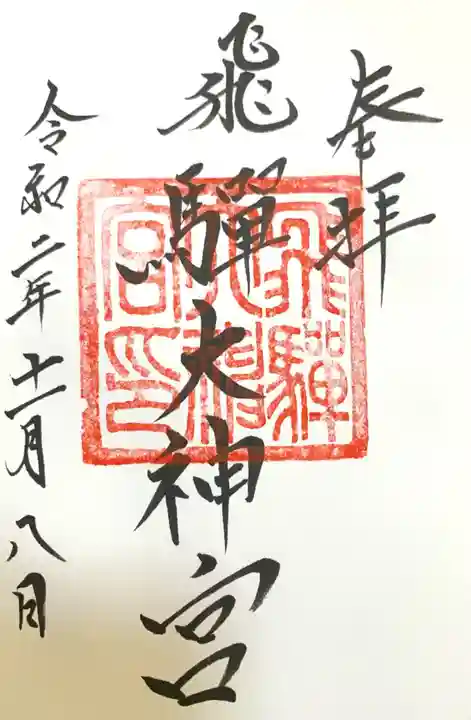 奉拝
飛騨大神宮
飛驒大神宮印
令和二年十一月八日